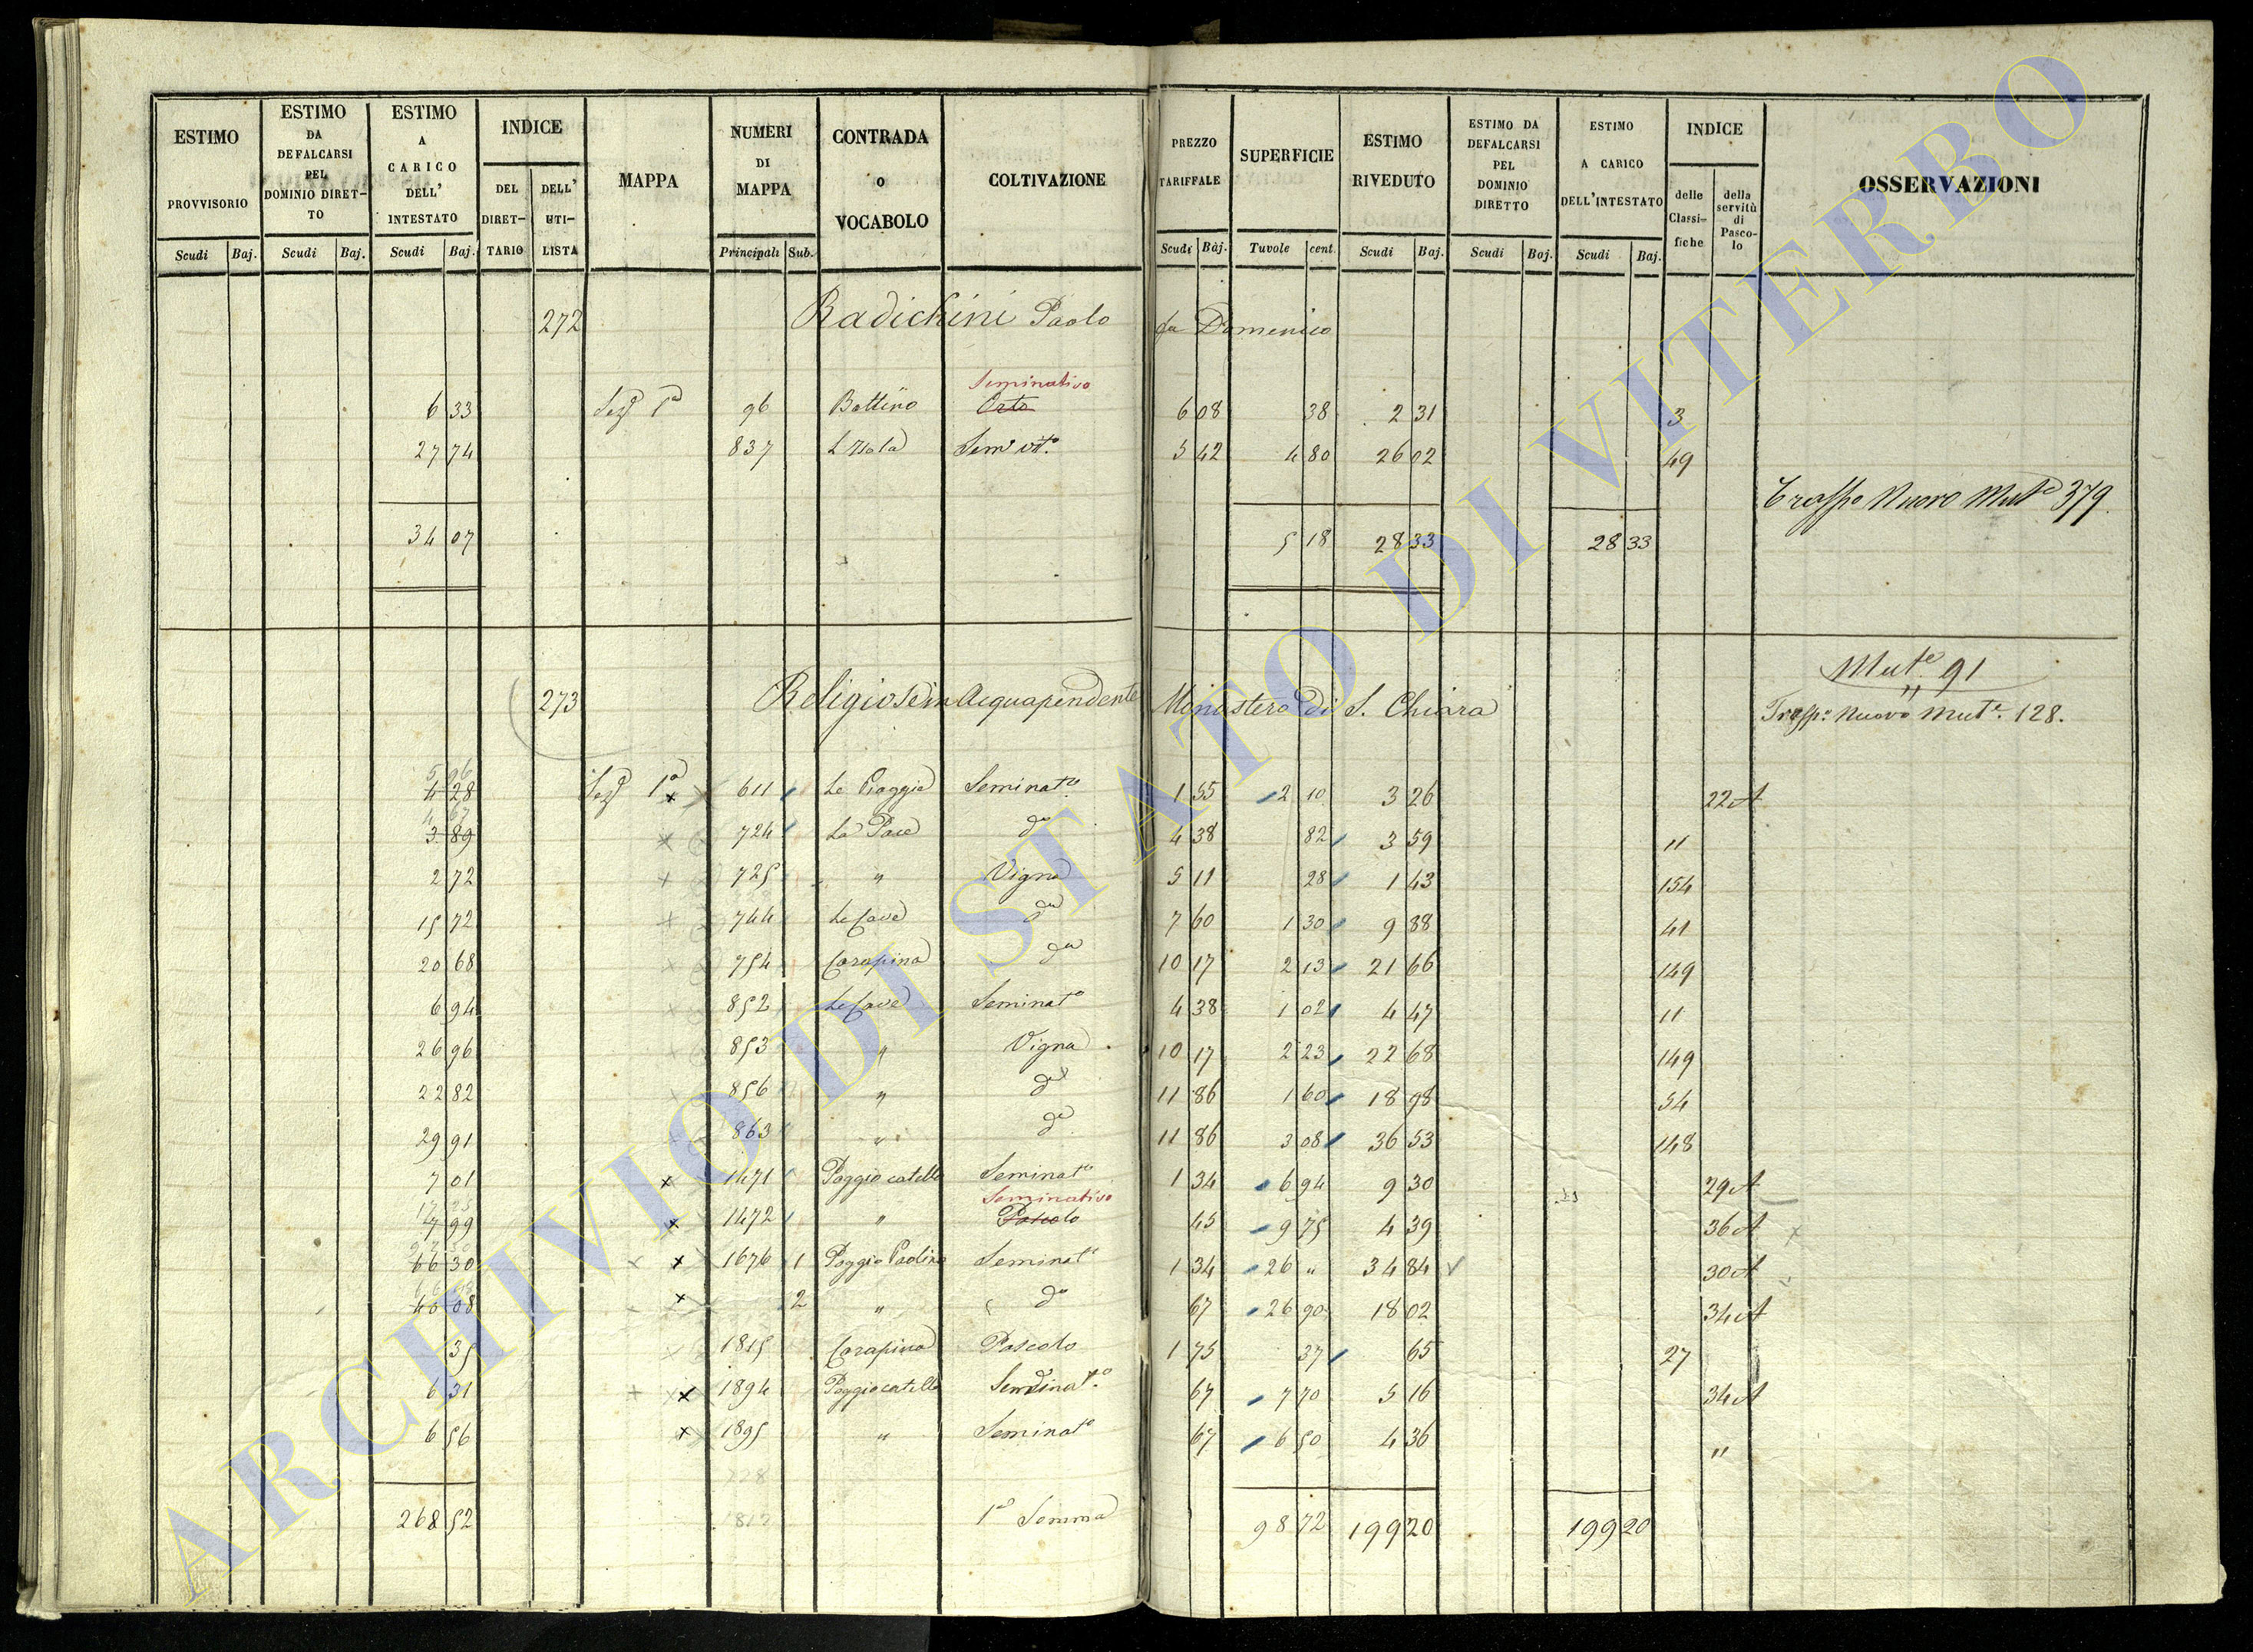 ESTIMO PROVVISORIO | ESTIMO DA DEFALCARSI PEL DOMINIO DIRETTO | ESTIMO A CARICO DELL' INTESTATO | INDICE DEL DIRETTARIO | DELL' UTILISTA | MAPPA | NUMERI DI MAPPA | CONTRADA o VOCABOLO | COLTIVAZIONE | PREZZO TARIFFALE | SUPERFICIE | ESTIMO RIVEDUTO | ESTIMO DA DEFALCARSI PEL DOMINIO DIRETTO | ESTIMO A CARICO DELL'INTESTATO | INDICE delle Classifiche | della servitù di Pascolo | OSSERVAZIONI
Scudi Baj. | Scudi Baj. | Scudi Baj. | Principali Sub. | Scudi Baj. | Tavole cent. | Scudi Baj. | Scudi Baj. | Scudi Baj.
272 Radichini Paolo fu Domenico
Seminativo
6 33 Sezᵉ 1ª 96 Bottino Orto 6 08 38 2 31 3
27 74 837 L'Isola Semᵒ vitᵒ 5 42 4 80 26 02 49
Traspᵒ Nuovo Mutᵉ 379
34 07 5 18 28 33 28 33
Mutᵉ 91
"
273 Religiose in Acquapendente Monastero di S. Chiara Traspᵒ Nuovo Mutᵉ 128.
5 96
4 28 Sezᵉ 1ª x 611 Le Piaggie Seminatᵒ 1 55 2 10 3 26 22 A
4 67
3 89 724 La Pace dᵒ 4 38 82 3 59 "
2 72 725 " Vigna 5 11 28 1 43 154
15 72 744 Le Cave dᵃ 7 60 1 30 9 88 41
20 68 754 Carapina dᵃ 10 17 2 13 21 66 149
6 94 852 Le Cave Seminatᵒ 4 38 1 02 4 47 11
26 96 853 " Vigna 10 17 2 23 22 68 149
22 82 856 " dᵃ 11 86 1 60 18 98 54
29 91 863 " dᵃ 11 86 3 08 36 53 148
7 01 x 1471 Poggio catello Seminatᵒ 1 34 6 94 9 30 29 A
Seminativo
7 99 x 1472 " Pascolo 45 9 75 4 39 36 A
66 30 x 1676 1 Poggio Paolino Seminatᵒ 1 34 26 " 34 84 30 A
46 08 x 2 " dᵒ 67 26 90 18 02 34 A
35 1815 Carapina Pascolo 1 75 37 65 27
6 31 x 1894 Poggio catello Seminatᵒ 67 7 70 5 16 34 A
6 56 x 1895 " Seminatᵒ 67 6 50 4 36 "
268 52 1ª Somma 98 72 199 20 199 20
ARCHIVIO DI STATO DI VITERBO